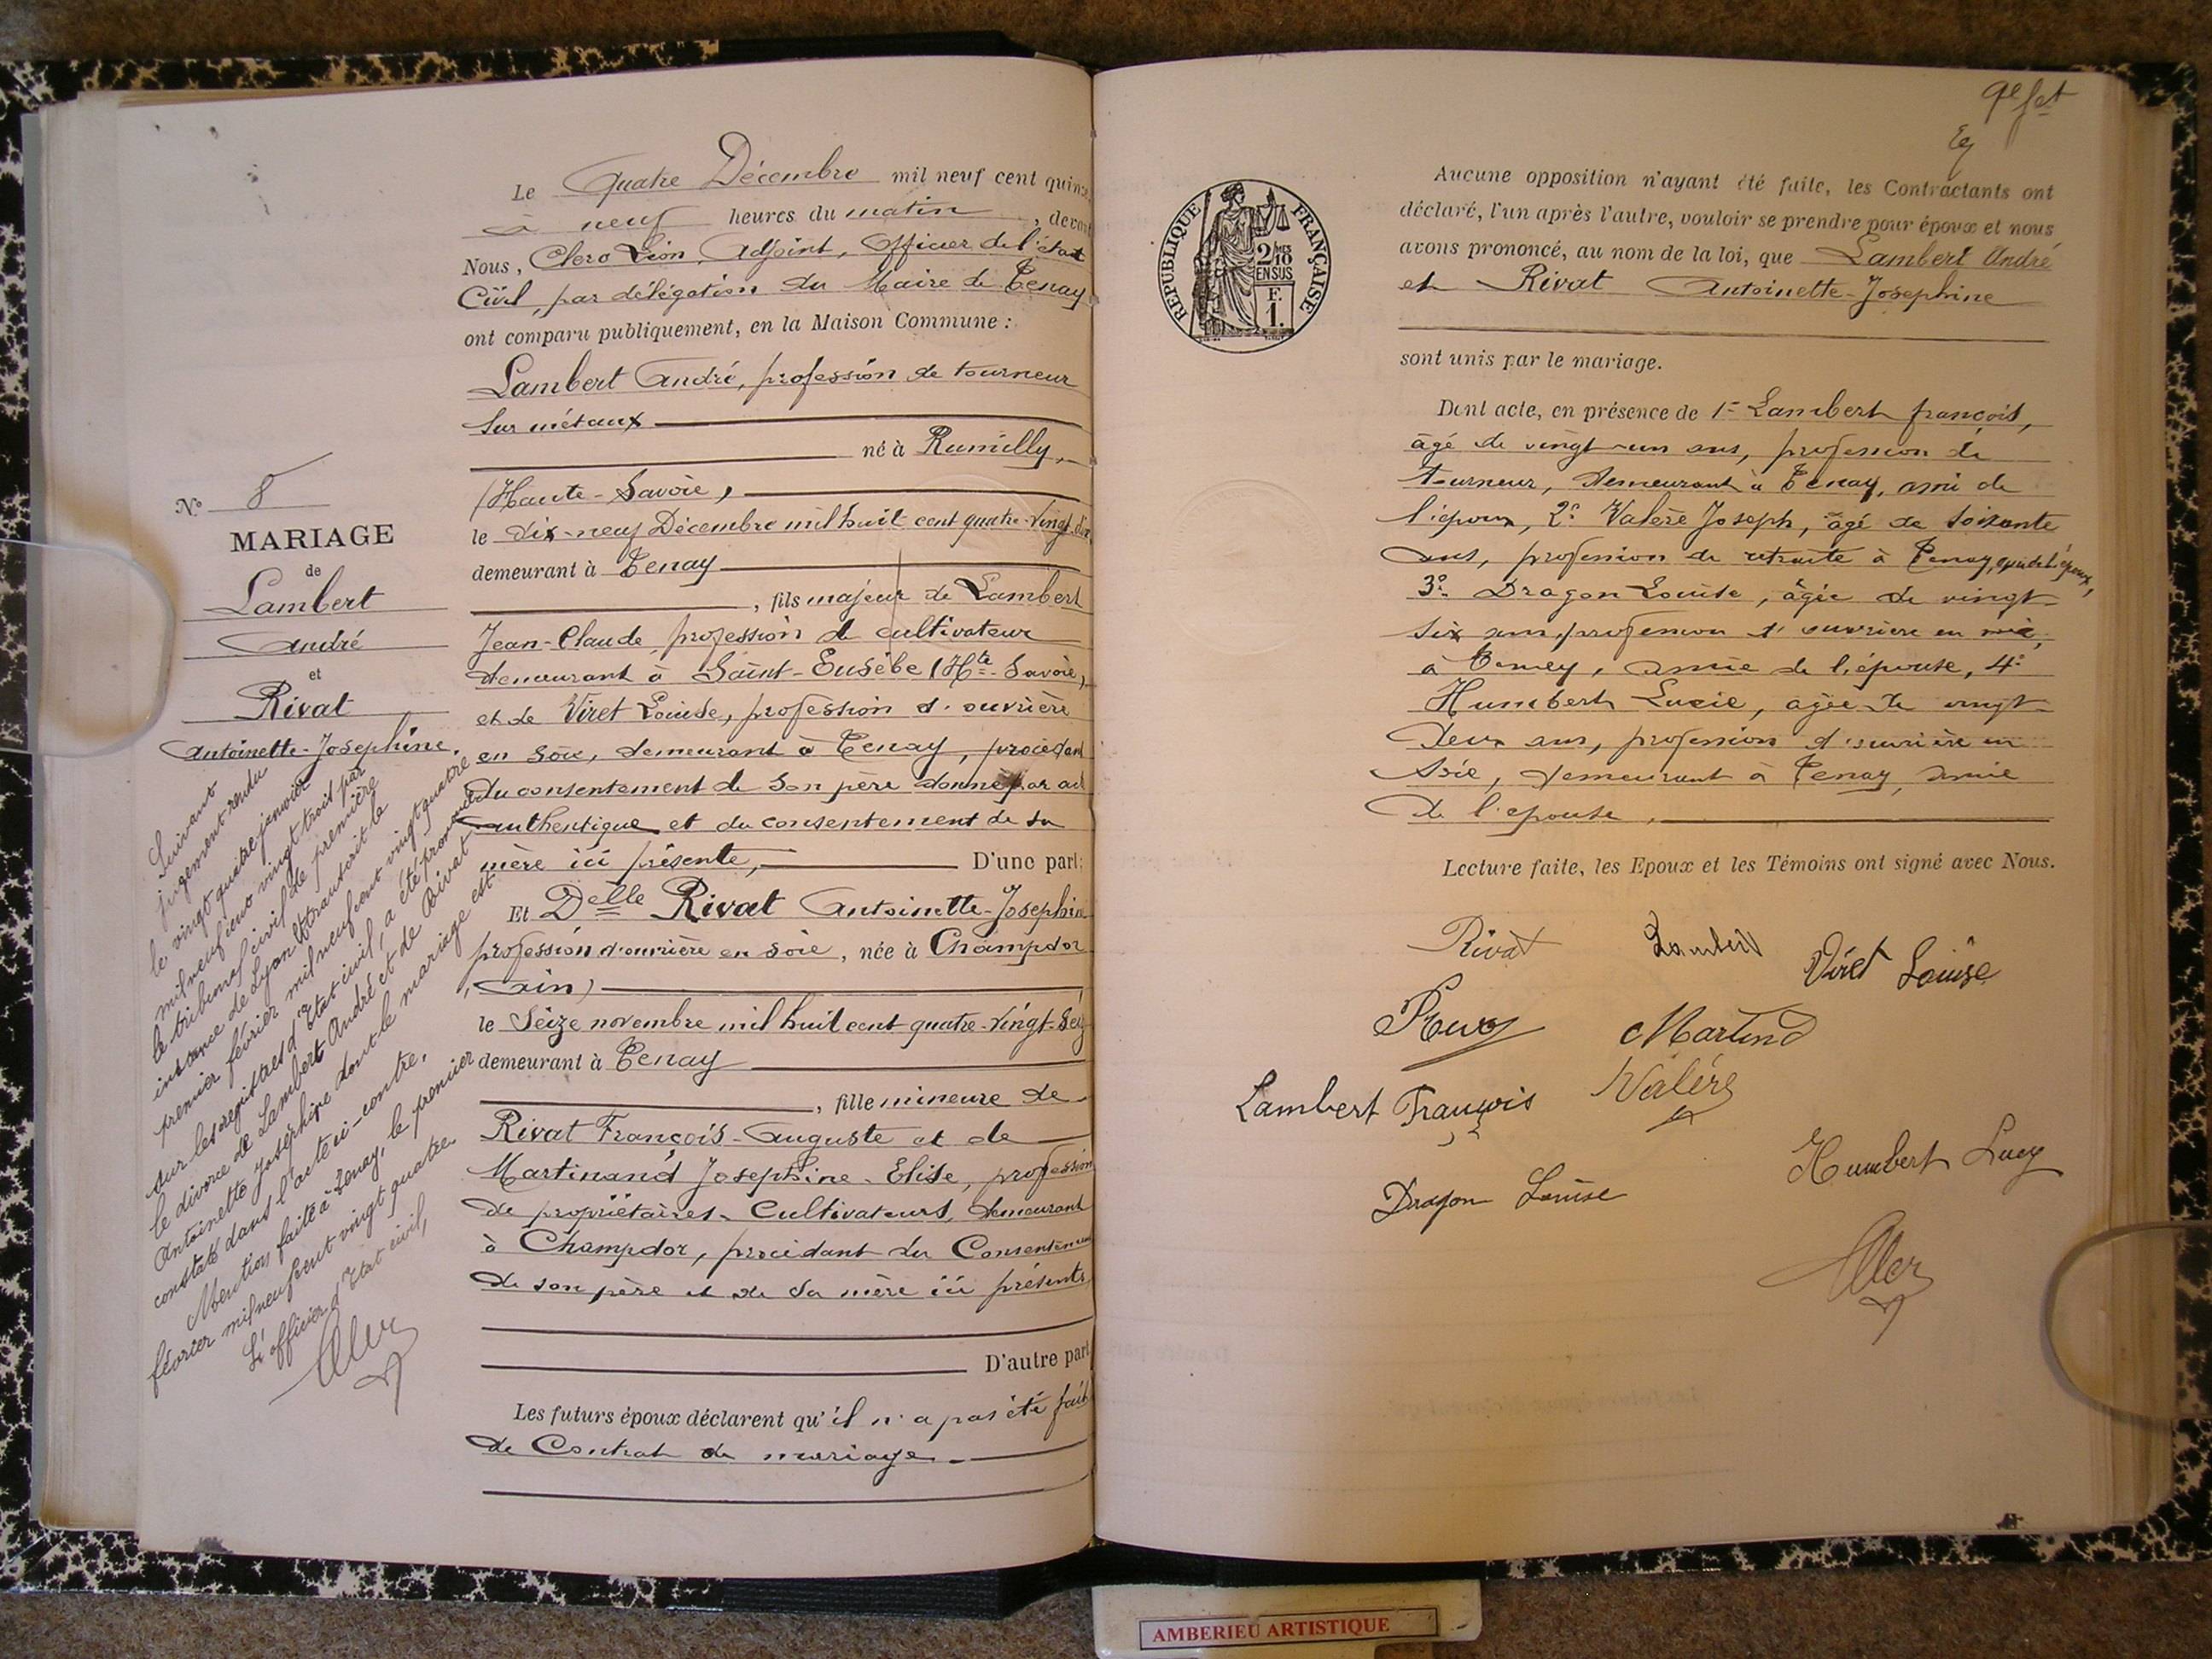 Le Quatre Décembre mil neuf cent quinze
à neuf heures du matin, devant
Nous, Clerc Léon, Adjoint, Officier de l'état
Civil, par délégation du Maire de Tenay
ont comparu publiquement, en la Maison Commune :
Lambert André, profession de tourneur
sur métaux
né à Rumilly,
(Haute-Savoie),
le dix-neuf Décembre mil huit cent quatre-vingt-dix
demeurant à Tenay
, fils majeur de Lambert
Jean-Claude, profession de cultivateur
demeurant à Saint-Eusèbe (Hte-Savoie),
et de Viret Louise, profession d'ouvrière
en soie, demeurant à Tenay, procédant
du consentement de son père donné par acte
authentique et du consentement de sa
mère ici présente, D'une part;
Et Delle Rivat Antoinette-Josephine
profession d'ouvrière en soie, née à Champdor
(Ain)
le Seize novembre mil huit cent quatre-vingt-seize
demeurant à Tenay
, fille mineure de
Rivat François-Auguste et de
Martinand Josephine-Elise, profession
de propriétaires-Cultivateurs, demeurant
à Champdor, procédant du Consentement
de son père et de sa mère ici présents
D'autre part
Les futurs époux déclarent qu'il n'a pas été fait
de Contrat de mariage.
N° 8
MARIAGE
de
Lambert
André
et
Rivat
Antoinette-Josephine.
Suivant
jugement rendu
le vingt quatre janvier
mil neuf cent vingt trois par
le tribunal civil de première
instance de Lyon et transcrit le
premier février mil neuf cent vingt quatre
sur les registres d'Etat civil, a été prononcé
le divorce de Lambert André et de Rivat
Antoinette Joséphine dont le mariage est
constaté dans l'acte ci-contre.
Mention faite à Tenay, le premier
février mil neuf cent vingt quatre.
L'officier d'Etat civil,
Aucune opposition n'ayant été faite, les Contractants ont
déclaré, l'un après l'autre, vouloir se prendre pour époux et nous
avons prononcé, au nom de la loi, que Lambert André
et Rivat Antoinette-Josephine
sont unis par le mariage.
RÉPUBLIQUE FRANÇAISE
2/10 EN SUS
F.
1.
Dont acte, en présence de 1° Lambert françois,
âgé de vingt-un ans, profession de
tourneur, demeurant à Tenay, ami de
l'époux, 2° Valère Joseph, âgé de soixante
ans, profession de retraité à Tenay, ami de l'époux,
3° Dragon Louise, âgée de vingt-
six ans, profession d'ouvrière en soie,
à Tenay, amie de l'épouse, 4°
Humbert Lucie, agée de vingt-
deux ans, profession d'ouvrière en
soie, demeurant à Tenay, amie
de l'epouse,
Lecture faite, les Epoux et les Témoins ont signé avec Nous.
Rivat Lambert Viret Louise
Martind
Lambert François Valére
Dragon Louise Humbert Lucy
AMBERIEU ARTISTIQUE